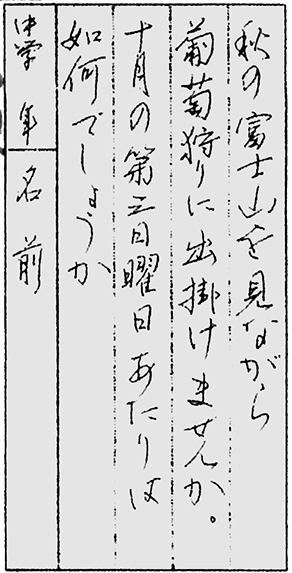 秋の富士山を見ながら
葡萄狩りに出掛けませんか。
十月の第三日曜日あたりは
如何でしょうか
学年 名前